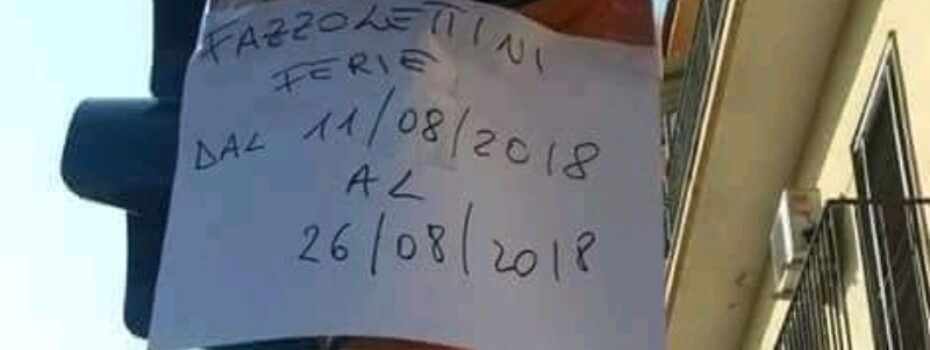 FAZZOLETTINI
FERIE
DAL 11/08/2018
AL
26/08/2018